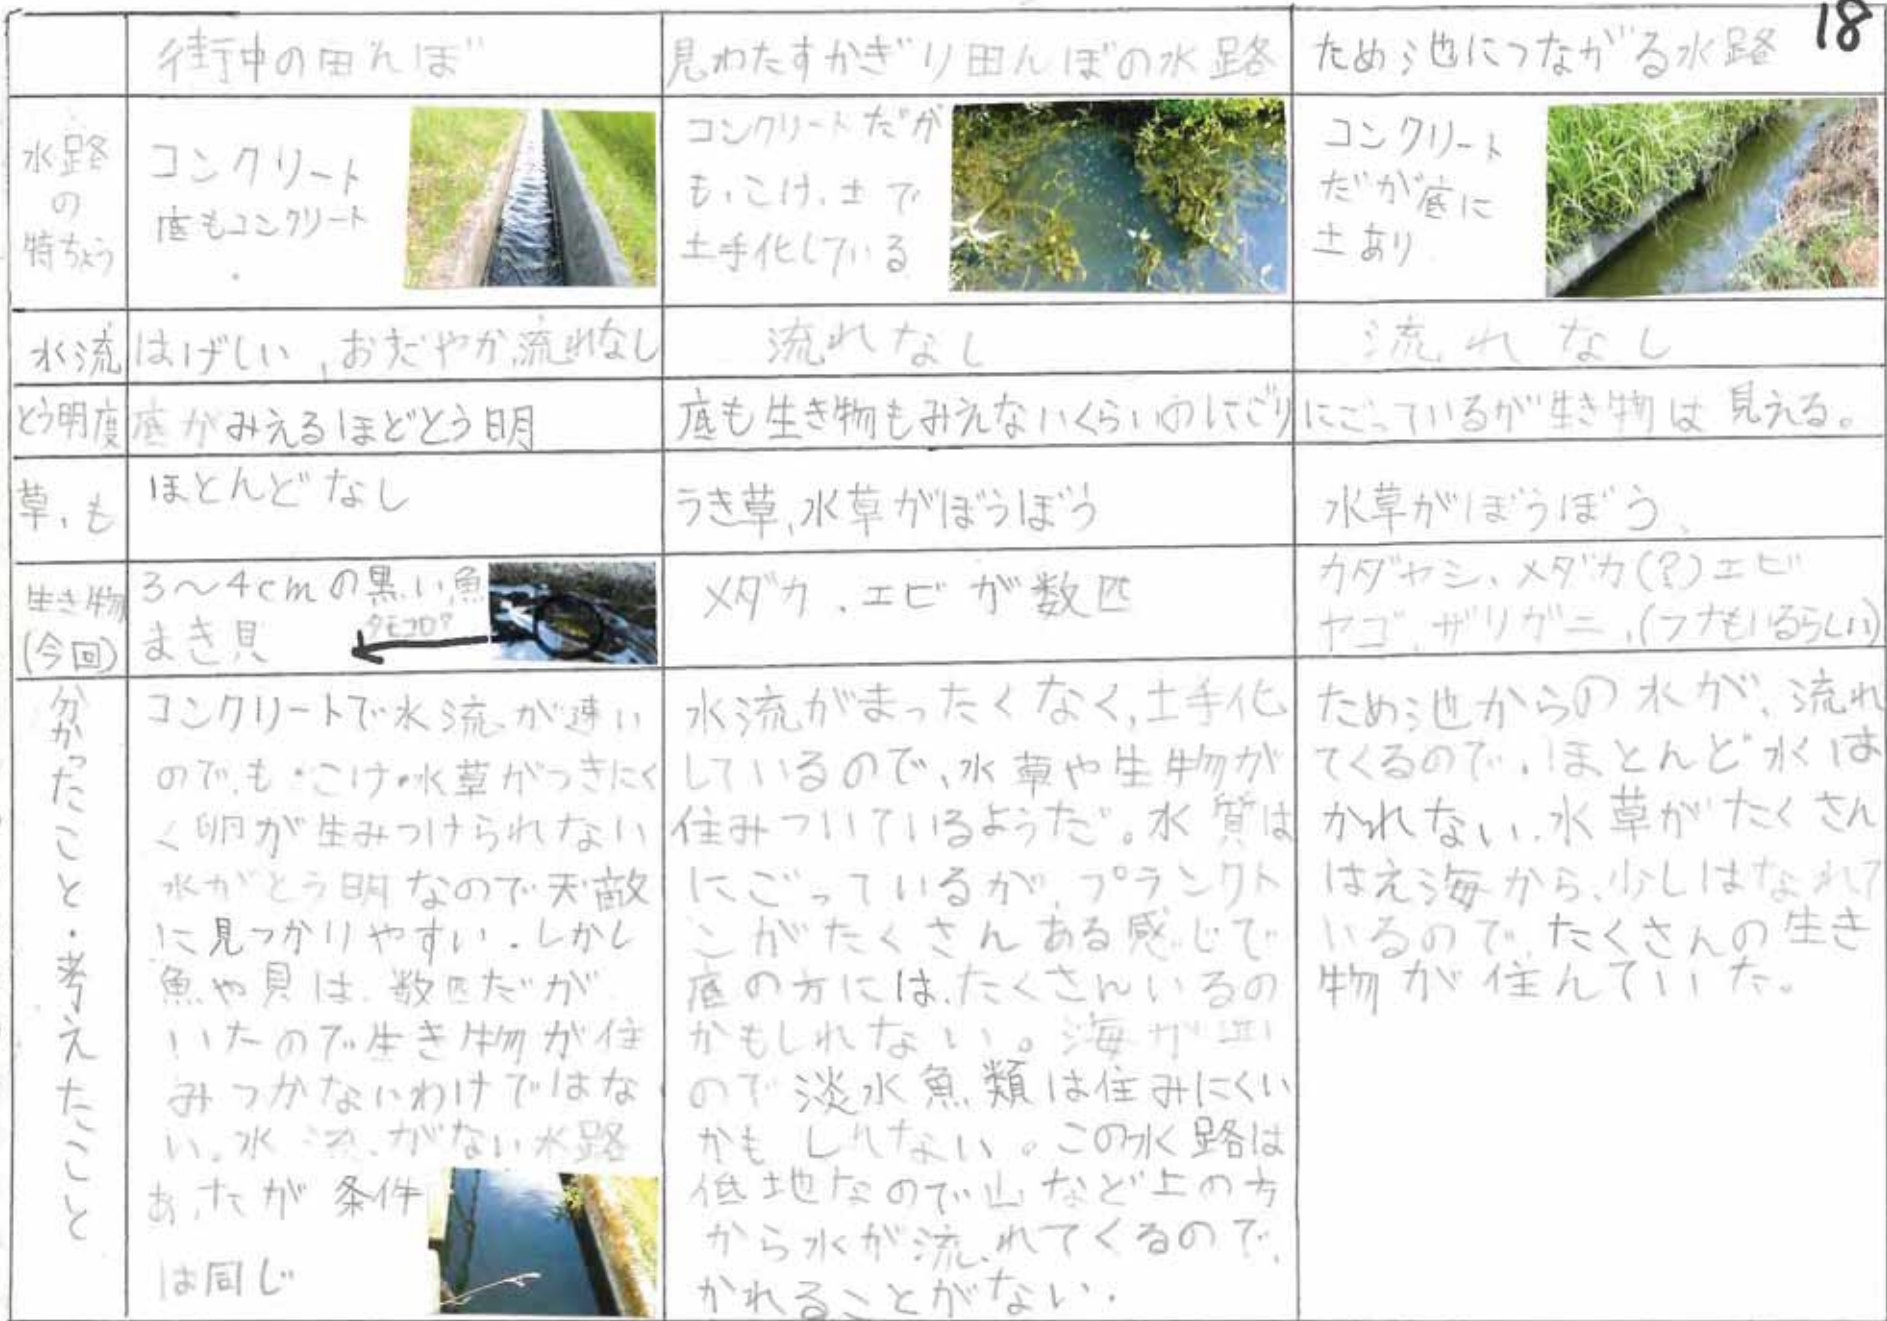 18
街中の田んぼ
見わたすかぎり田んぼの水路
ため池につながる水路
水路
の
特ちょう
コンクリート
底もコンクリート
コンクリートだが
も、こけ、土で
土手化している
コンクリート
だが底に
土あり
水流
はげしい、おだやか、流れなし
流れなし
流れなし
とう明度
底がみえるほどとう明
底も生き物もみえないくらいのにごり
にごっているが生き物は見える。
草、も
ほとんどなし
うき草、水草がぼうぼう
水草がぼうぼう、
生き物
(今回)
3〜4cmの黒い魚
タモロコ?
まき貝
メダカ、エビが数匹
カダヤシ、メダカ(?)エビ
ヤゴ、ザリガニ、(フナもいるらしい)
分かったこと・考えたこと
コンクリートで水流が速い
ので、も・こけ・水草がつきにく
く卵が生みつけられない
水がとう明なので天敵
に見つかりやすい。しかし
魚や貝は、数匹だが
いたので生き物が住
みつかないわけではな
い。水流がない水路
あったが条件
は同じ
水流がまったくなく、土手化
しているので、水草や生物が
住みついているようだ。水質は
にごっているが、プランクト
ンがたくさんある感じで
底の方には、たくさんいるの
かもしれない。海が近い
ので淡水魚類は住みにくい
かもしれない。この水路は
低地なので山など上の方
から水が流れてくるので、
かれることがない。
ため池からの水が、流れ
てくるので、ほとんど水は
かれない。水草がたくさん
はえ海から、少しはなれて
いるので、たくさんの生き
物が住んでいた。